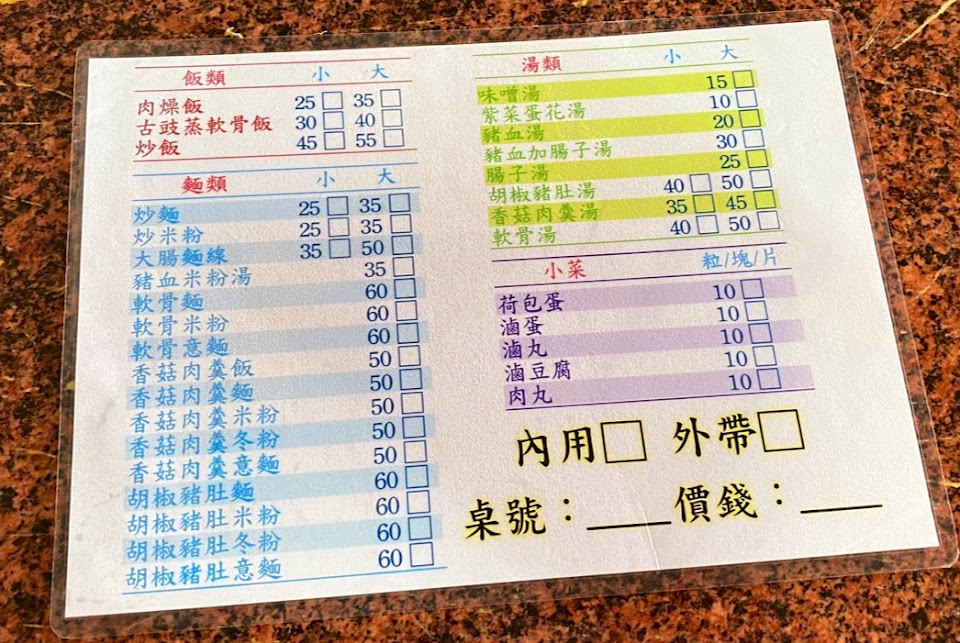 飯類 小 大
肉燥飯 25 □ 35 □
古豉蒸軟骨飯 30 □ 40 □
炒飯 45 □ 55 □
麵類 小 大
炒麵 25 □ 35 □
炒米粉 25 □ 35 □
大腸麵線 35 □ 50 □
豬血米粉湯 35 □
軟骨麵 60 □
軟骨米粉 60 □
軟骨意麵 60 □
香菇肉羹飯 50 □
香菇肉羹麵 50 □
香菇肉羹米粉 50 □
香菇肉羹冬粉 50 □
香菇肉羹意麵 50 □
胡椒豬肚麵 60 □
胡椒豬肚米粉 60 □
胡椒豬肚冬粉 60 □
胡椒豬肚意麵 60 □
湯類 小 大
味噌湯 15 □
紫菜蛋花湯 10 □
豬血湯 20 □
豬血加腸子湯 30 □
腸子湯 25 □
胡椒豬肚湯 40 □ 50 □
香菇肉羹湯 35 □ 45 □
軟骨湯 40 □ 50 □
小菜 粒/塊/片
荷包蛋 10 □
滷蛋 10 □
滷丸 10 □
滷豆腐 10 □
肉丸 10 □
內用□ 外帶□
桌號：____價錢：____